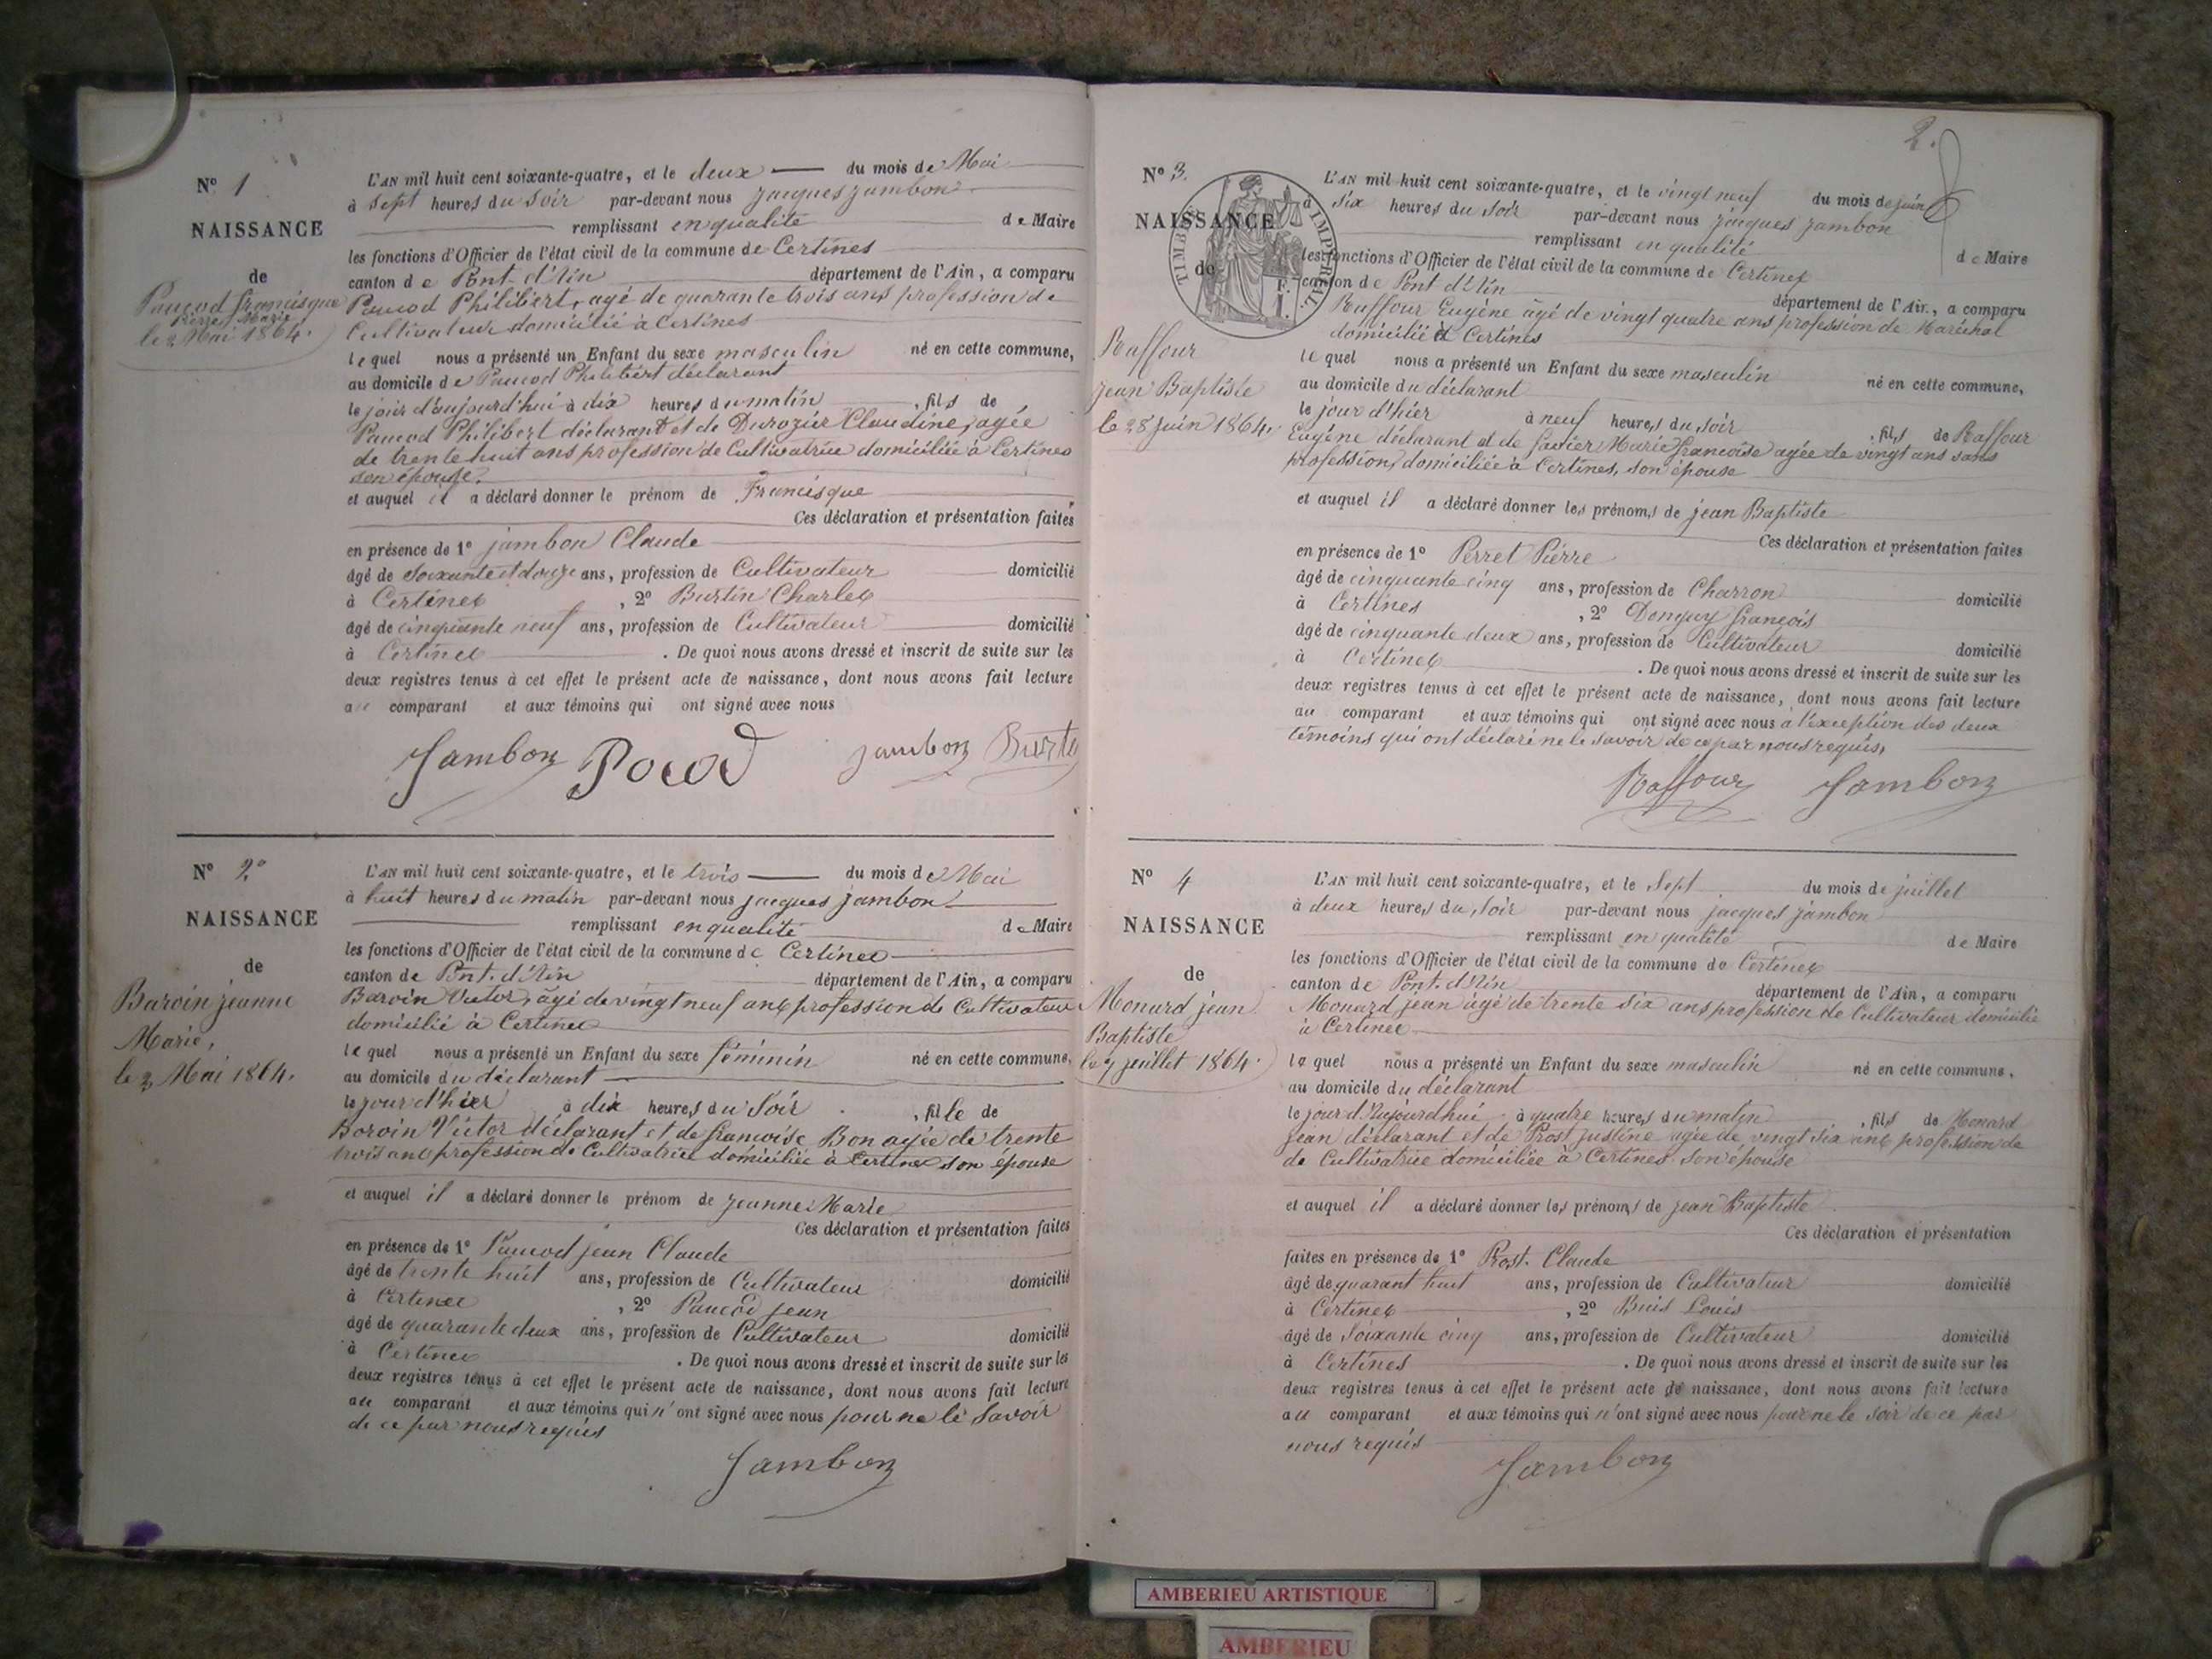 N° 1
NAISSANCE
de
Paucod francisque
Pierre Marie
le 2 Mai 1864.
L'AN mil huit cent soixante-quatre, et le deux du mois de Mai
à Sept heures du Soir par-devant nous jacques jambon
remplissant en qualité de Maire
les fonctions d'Officier de l'état civil de la commune de Certines
canton de Pont-d'Ain département de l'Ain, a comparu
Paucod Philibert, agé de quarante trois ans profession de
Cultivateur domicilié à Certines
lequel nous a présenté un Enfant du sexe masculin né en cette commune,
au domicile de Paucod Philibert déclarant
le jour d'aujourd'hui à dix heures du matin, fils de
Paucod Philibert déclarant et de Durozier Claudine, agée
de trente huit ans profession de Cultivatrice domiciliée à Certines
son épouse.
et auquel il a déclaré donner le prénom de Francisque
Ces déclaration et présentation faites
en présence de 1° jambon Claude
âgé de Soixante et douze ans, profession de Cultivateur domicilié
à Certines, 2° Burtin Charles
âgé de cinquante neuf ans, profession de Cultivateur domicilié
à Certines. De quoi nous avons dressé et inscrit de suite sur les
deux registres tenus à cet effet le présent acte de naissance, dont nous avons fait lecture
au comparant et aux témoins qui ont signé avec nous
Jambon Pocod jambon Burtin
N° 2°
NAISSANCE
de
Baroin jeanne
Marie,
le 2 Mai 1864.
L'AN mil huit cent soixante-quatre, et le trois du mois de Mai
à huit heures du matin par-devant nous jacques jambon
remplissant en qualité de Maire
les fonctions d'Officier de l'état civil de la commune de Certines
canton de Pont-d'Ain département de l'Ain, a comparu
Baroin Victor, âgé de vingt neuf ans profession de Cultivateur
domicilié à Certines
lequel nous a présenté un Enfant du sexe féminin né en cette commune,
au domicile du déclarant
le jour d'hier à dix heures du Soir, fille de
Boroin Victor déclarant et de françoise Bon agée de trente
trois ans profession de Cultivatrice domiciliée à Certines son épouse
et auquel il a déclaré donner le prénom de jeanne Marie
Ces déclaration et présentation faites
en présence de 1° Paucod jean Claude
âgé de trente huit ans, profession de Cultivateur domicilié
à Certines, 2° Paucod jean
âgé de quarante deux ans, profession de Cultivateur domicilié
à Certines. De quoi nous avons dressé et inscrit de suite sur les
deux registres tenus à cet effet le présent acte de naissance, dont nous avons fait lecture
au comparant et aux témoins qui n'ont signé avec nous pour ne le Savoir
de ce par nous requis
Jambon
2.
N° 3.
NAISSANCE
de
TIMBRE IMPERIAL
Raffour
jean Baptiste
le 28 juin 1864.
L'AN mil huit cent soixante-quatre, et le vingt neuf du mois de juin
à six heures du Soir par-devant nous jacques jambon
remplissant en qualité de Maire
les fonctions d'Officier de l'état civil de la commune de Certines
canton de Pont d'Ain département de l'Ain, a comparu
Raffour Eugène âgé de vingt quatre ans profession de Maréchal
domicilié à Certines
lequel nous a présenté un Enfant du sexe masculin né en cette commune,
au domicile du déclarant
le jour d'hier à neuf heures du Soir, fils de Raffour
Eugène déclarant et de Marie françoise agée de vingt ans sans
profession, domiciliée à Certines, son épouse
et auquel il a déclaré donner les prénoms de jean Baptiste
Ces déclaration et présentation faites
en présence de 1° Perret Pierre
âgé de cinquante cinq ans, profession de Charron domicilié
à Certines, 2° Donguy françois
âgé de cinquante deux ans, profession de Cultivateur domicilié
à Certines. De quoi nous avons dressé et inscrit de suite sur les
deux registres tenus à cet effet le présent acte de naissance, dont nous avons fait lecture
au comparant et aux témoins qui ont signé avec nous à l'exception des deux
témoins qui ont déclaré ne le savoir de ce par nous requis,
Raffour Jambon
N° 4
NAISSANCE
de
Monard jean
Baptiste
le 7 juillet 1864.
L'AN mil huit cent soixante-quatre, et le Sept du mois de juillet
à deux heures du Soir par-devant nous jacques jambon
remplissant en qualité de Maire
les fonctions d'Officier de l'état civil de la commune de Certines
canton de Pont-d'Ain département de l'Ain, a comparu
Monard jean âgé de trente six ans profession de Cultivateur domicilié
à Certines
lequel nous a présenté un Enfant du sexe masculin né en cette commune,
au domicile du déclarant
le jour d'Aujourdhui à quatre heures du matin, fils de Monard
jean déclarant et de Prost justine agée de vingt six ans profession de
de Cultivatrice domiciliée à Certines son épouse
et auquel il a déclaré donner les prénoms de jean Baptiste
Ces déclaration et présentation
faites en présence de 1° Prost Claude
âgé de quarant huit ans, profession de Cultivateur domicilié
à Certines, 2° Buis Louis
âgé de Soixante cinq ans, profession de Cultivateur domicilié
à Certines. De quoi nous avons dressé et inscrit de suite sur les
deux registres tenus à cet effet le présent acte de naissance, dont nous avons fait lecture
au comparant et aux témoins qui n'ont signé avec nous pour ne le Soir de ce par
nous requis
Jambon
AMBERIEU ARTISTIQUE
AMBERIEU